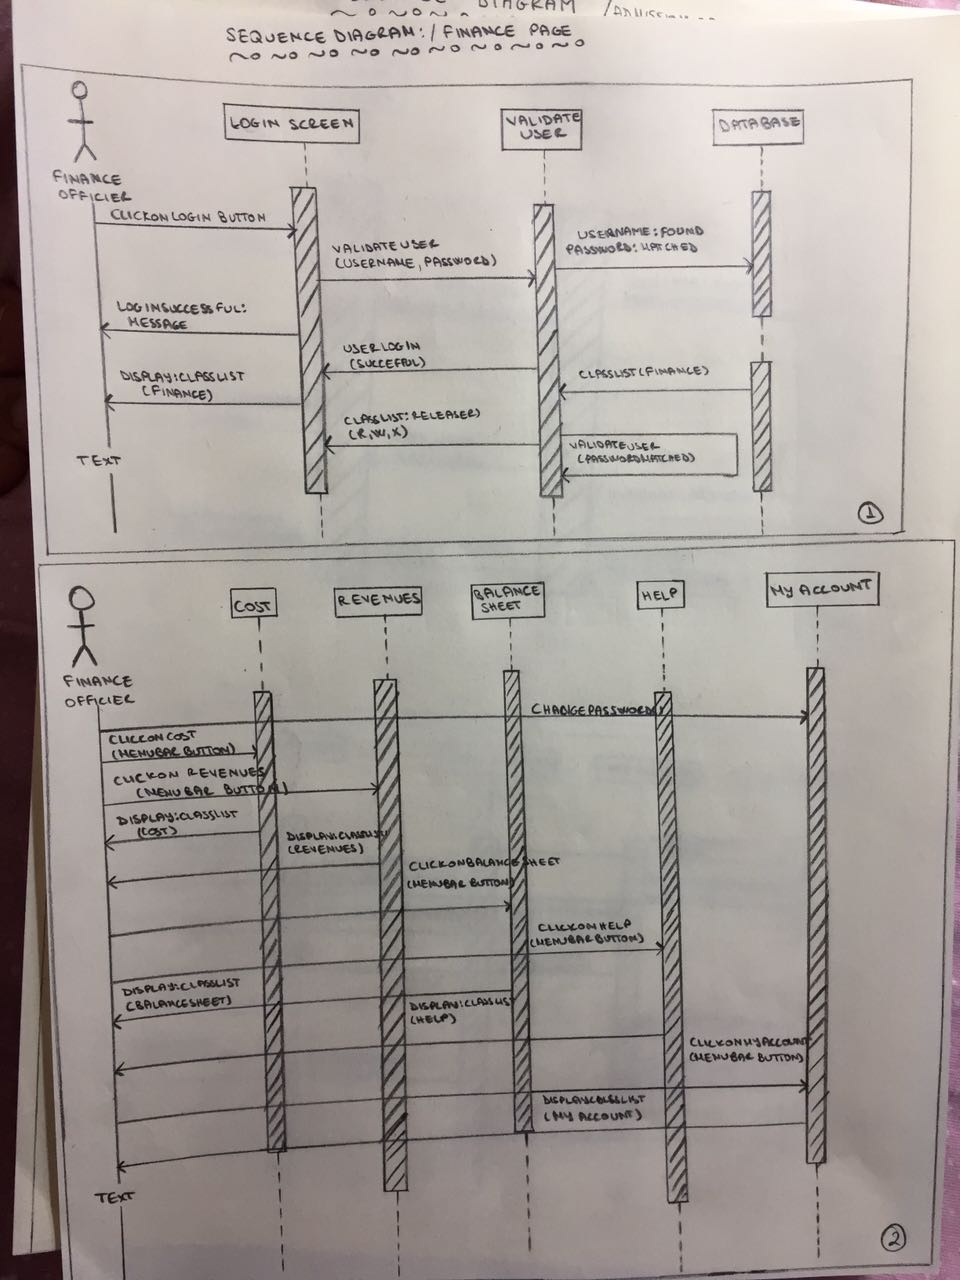 DIAGRAM
SEQUENCE DIAGRAM:/ FINANCE PAGE
LOGIN SCREEN
VALIDATE
USER
DATABASE
FINANCE
OFFICIER
CLICKONLOGIN BUTTON
VALIDATEUSER
(USERNAME, PASSWORD)
USERNAME:FOUND
PASSWORD:MATCHED
LOGINSUCCESSFUL:
MESSAGE
USERLOGIN
(SUCCEFUL)
CLASSLIST(FINANCE)
DISPLAY:CLASSLIST
(FINANCE)
CLASSLIST:RELEASER)
(R,W,X)
VALIDATEUSER
(PASSWORDMATCHED)
TEXT
1
COST
REVENUES
BALANCE
SHEET
HELP
MY ACCOUNT
FINANCE
OFFICIER
CLICKONCOST
(MENUBAR BUTTON)
CLICKON REVENUES
(MENUBAR BUTTON)
DISPLAY:CLASSLIST
(COST)
(REVENUES)
CLICKONBALANCESHEET
(MENUBAR BUTTON)
CLICKONHELP
(MENUBARBUTTON)
DISPLAY:CLASSLIST
(BALANCESHEET)
(HELP)
CLICKONMYACCOUNT
(MENUBAR BUTTON)
(MY ACCOUNT)
TEXT
2